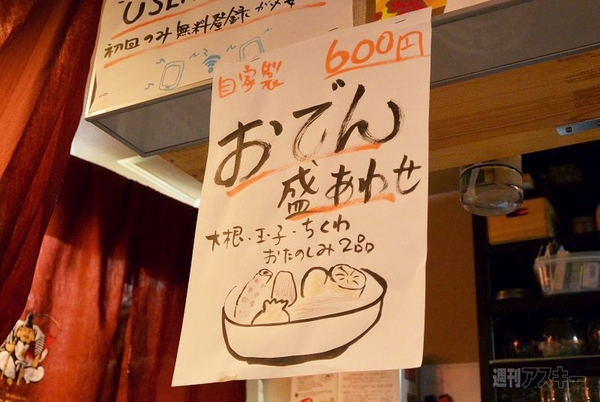 初回のみ無料登録が必要
自家製
600円
おでん
盛あわせ
大根・玉子・ちくわ
おたのしみ2品
週刊アスキー